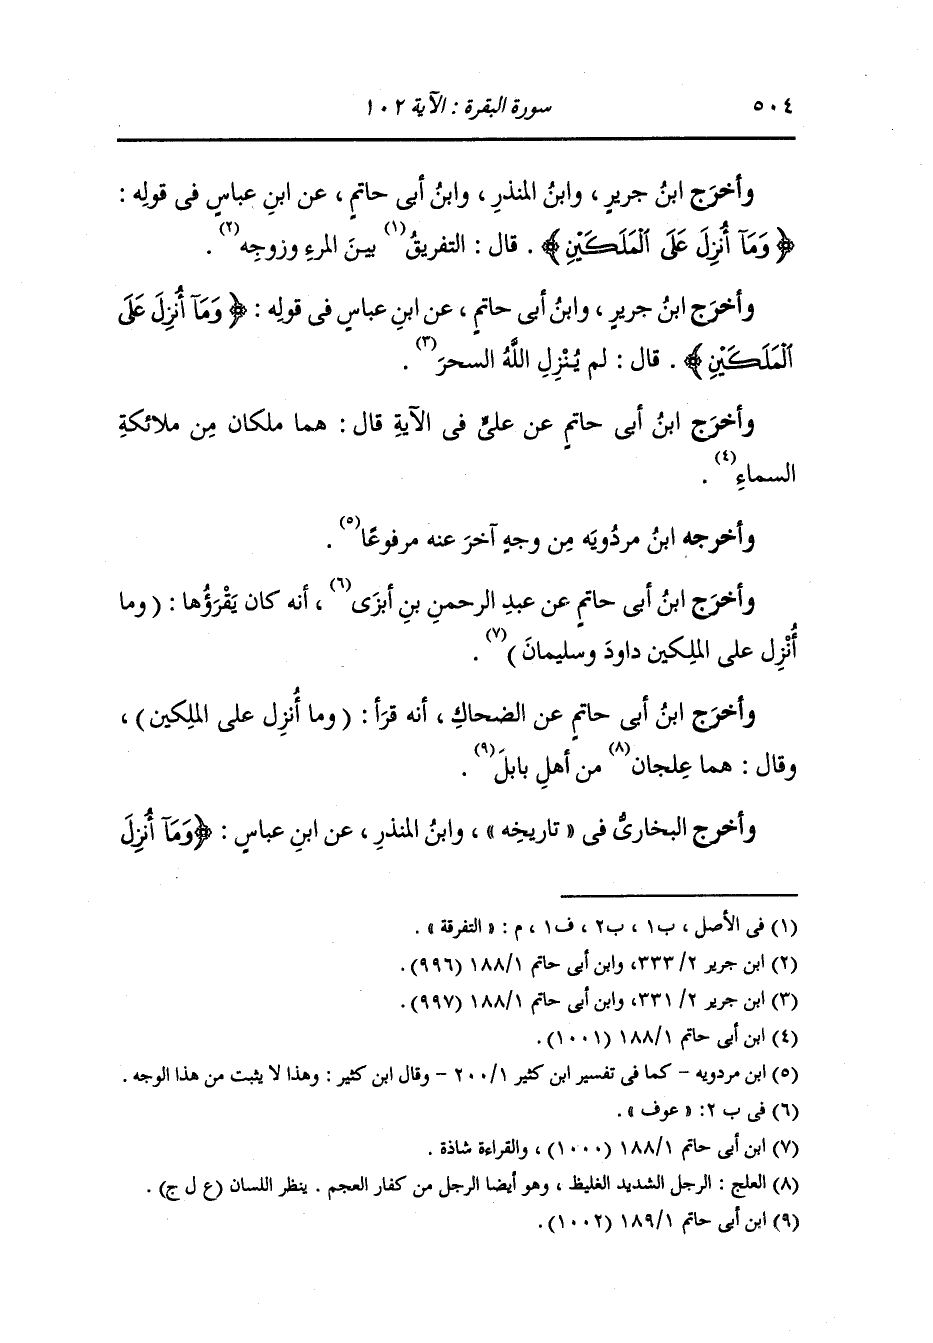 ٥٠٤ سورة البقرة : الآية ١٠٢
وأخرَج ابنُ جريرٍ ، وابنُ المنذرِ ، وابنُ أبى حاتمٍ ، عن ابنِ عباسٍ فى قولِه :
﴿ وَمَآ أُنزِلَ عَلَى ٱلْمَلَكَيْنِ ﴾ . قال : التفريقُ(١) بينَ المرءِ وزوجِه(٢) .
وأخرَج ابنُ جريرٍ ، وابنُ أبى حاتمٍ ، عن ابنِ عباسٍ فى قولِه : ﴿ وَمَآ أُنزِلَ عَلَى
ٱلْمَلَكَيْنِ ﴾ . قال : لم يُنْزِلِ اللَّهُ السحرَ(٣) .
وأخرَج ابنُ أبى حاتمٍ عن علىٍّ فى الآيةِ قال : هما ملكان مِن ملائكةِ
السماءِ(٤) .
وأخرجه ابنُ مردُويَه مِن وجهٍ آخرَ عنه مرفوعًا(٥) .
وأخرَج ابنُ أبى حاتمٍ عن عبدِ الرحمنِ بنِ أبزَى(٦) ، أنه كان يَقْرَؤُها : ( وما
أُنْزِل على الملِكين داودَ وسليمانَ )(٧) .
وأخرَج ابنُ أبى حاتمٍ عن الضحاكِ ، أنه قرَأ : ( وما أُنزِل على الملِكين ) ،
وقال : هما عِلجان(٨) من أهلِ بابلَ(٩) .
وأخرج البخارىُّ فى « تاريخِه » ، وابنُ المنذرِ ، عن ابنِ عباسٍ : ﴿وَمَآ أُنزِلَ
(١) فى الأصل ، ب١ ، ب٢ ، ف١ ، م : « التفرقة » .
(٢) ابن جرير ٢/ ٣٣٣، وابن أبى حاتم ١/ ١٨٨ (٩٩٦).
(٣) ابن جرير ٢/ ٣٣١، وابن أبى حاتم ١/ ١٨٨ (٩٩٧).
(٤) ابن أبى حاتم ١/ ١٨٨ (١٠٠١).
(٥) ابن مردويه - كما فى تفسير ابن كثير ١/ ٢٠٠ - وقال ابن كثير : وهذا لا يثبت من هذا الوجه .
(٦) فى ب ٢: « عوف » .
(٧) ابن أبى حاتم ١/ ١٨٨ (١٠٠٠) ، والقراءة شاذة .
(٨) العلج : الرجل الشديد الغليظ ، وهو أيضا الرجل من كفار العجم . ينظر اللسان (ع ل ج) .
(٩) ابن أبى حاتم ١/ ١٨٩ (١٠٠٢).